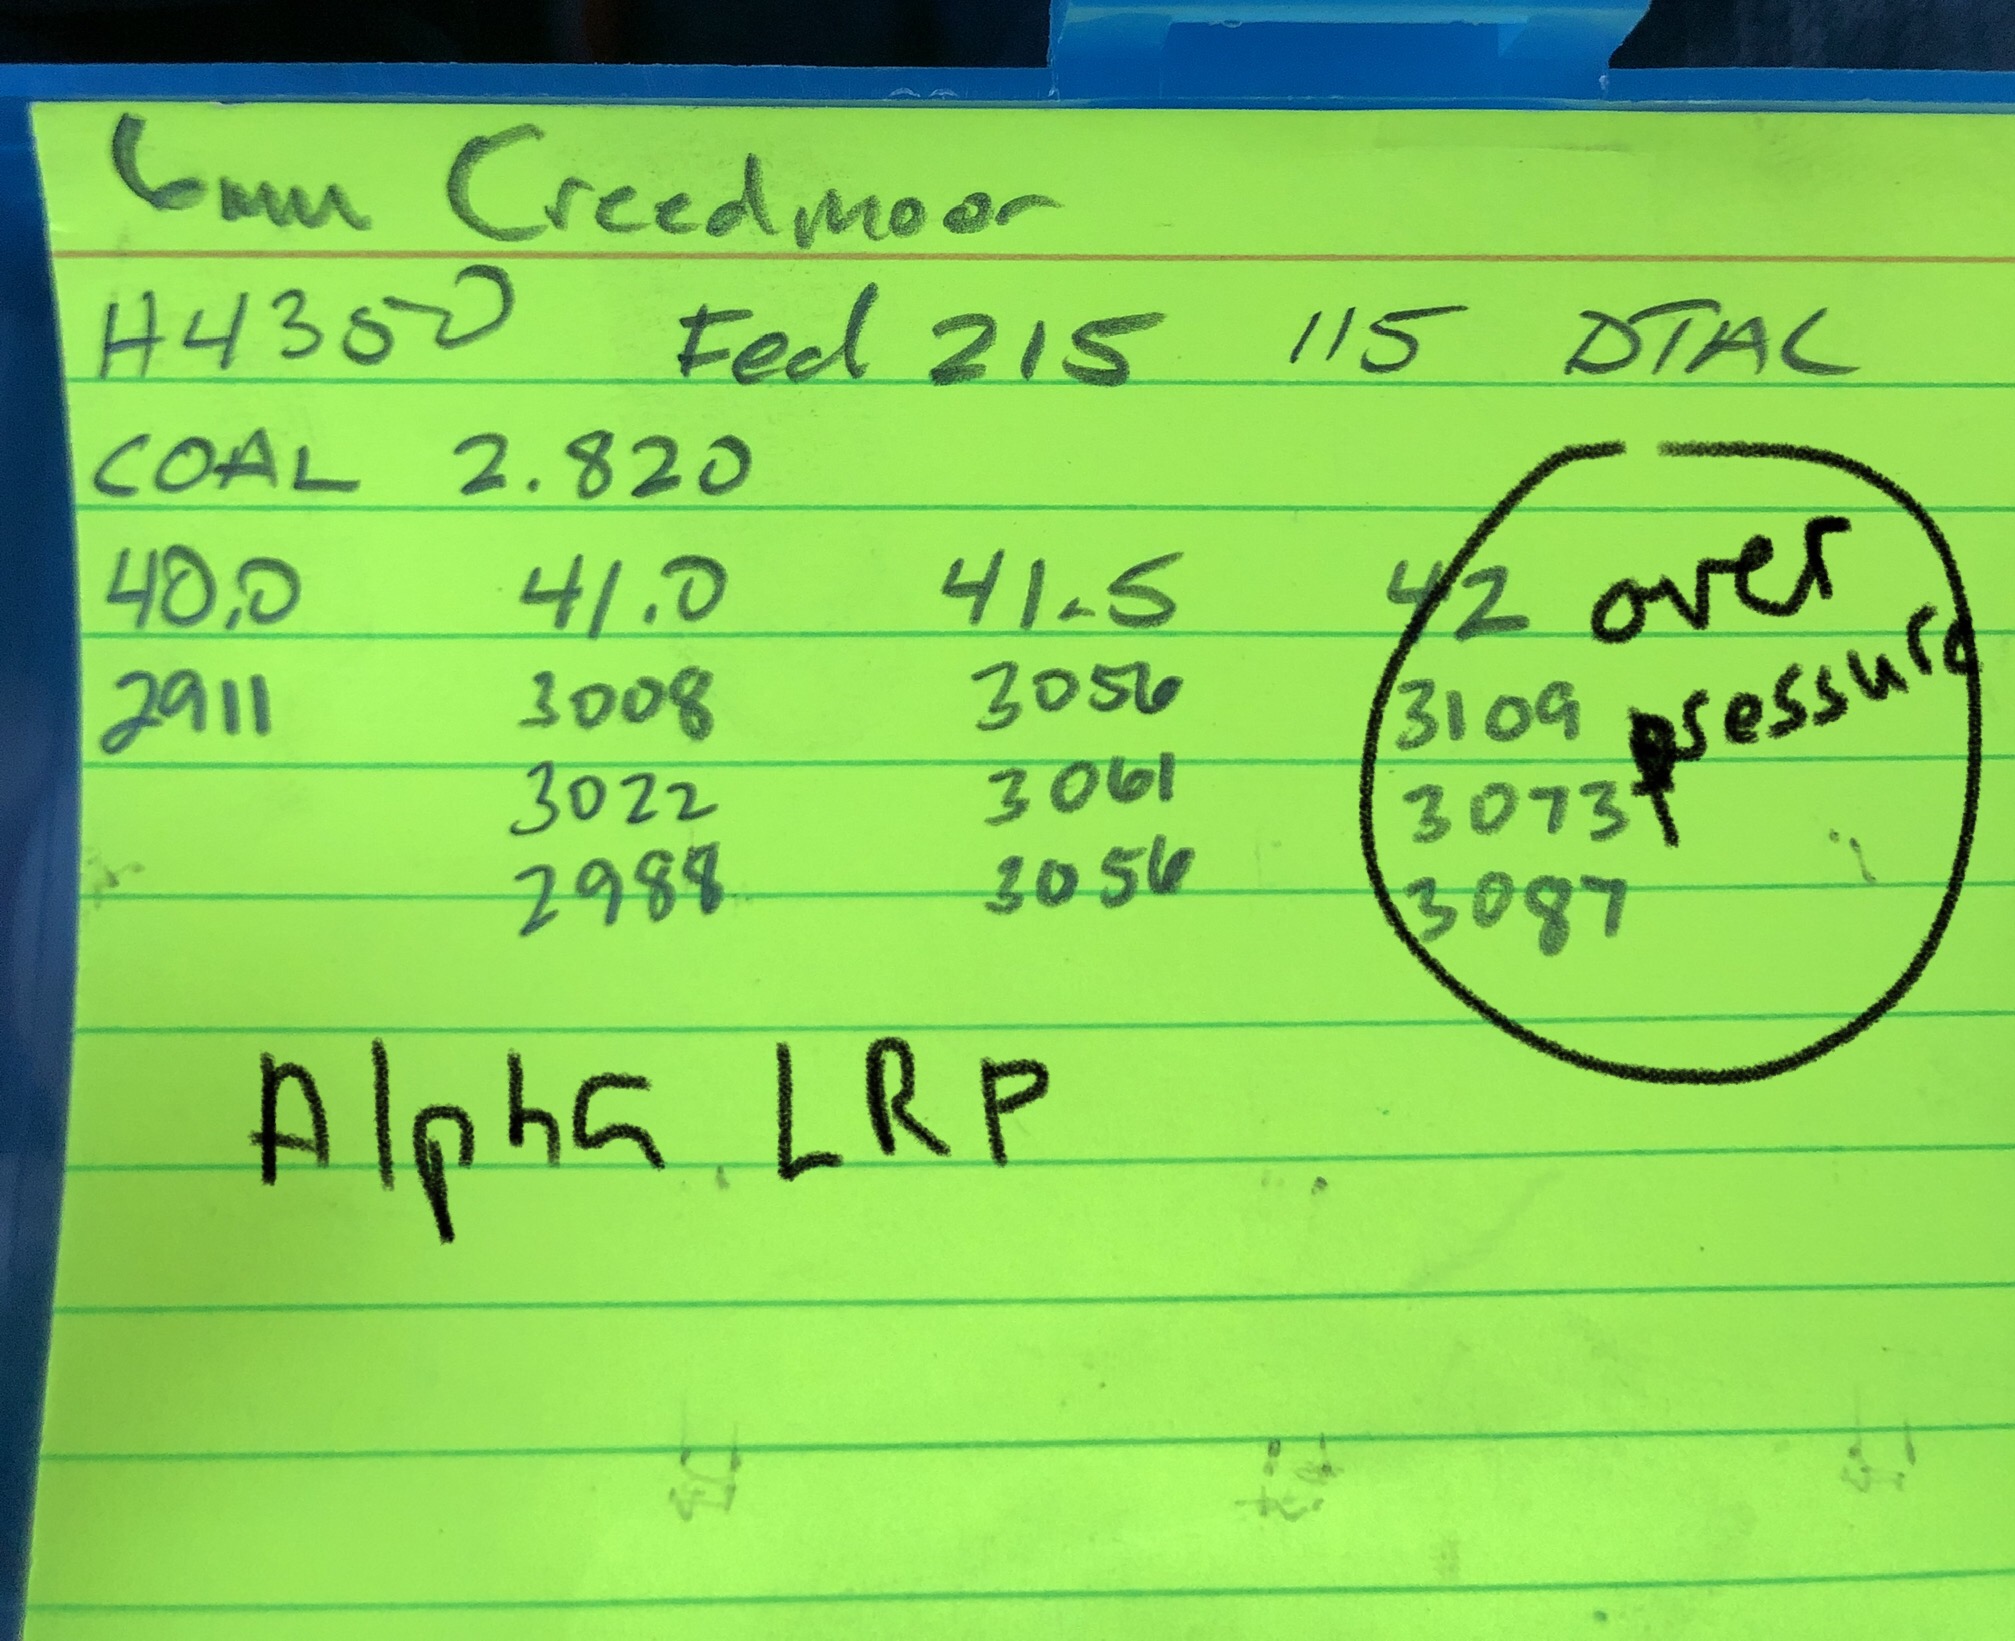 6mm Creedmoor
H4350 Fed 215 115 DTAC
COAL 2.820
40.0 41.0 41.5 42 over
2911 3008 3056 3109 pressure
3022 3061 3073
2988 3056 3087
Alpha LRP